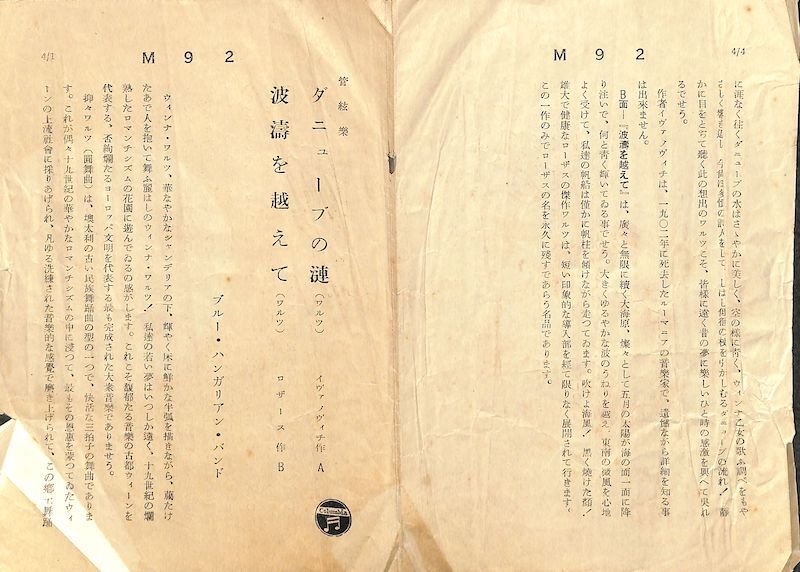 4/1
M92
管絃樂
ダニューブの漣（ワルツ） イヴァノヴィチ作 A
波濤を越えて（ワルツ） ロザース作 B
Columbia
ブルー・ハンガリアン・バンド
ウィンナ・ワルツ、華なやかなシャンデリアの下、輝やく床に鮮かな半弧を描きながら、﨟たけ
たあで人を抱いて舞ふ麗はしのウィンナ・ワルツ！ 私達の若い夢はいつしか遠く、十九世紀の爛
熟したロマンチシズムの花園に遊んでゐるの感がします。これこそ馥郁たる音樂の古都ウィーンを
代表する、否絢爛たるヨーロッパ文明を代表する最も完成された大衆音樂でありませう。
抑々ワルツ（圓舞曲）は、墺太利の古い民族舞踊曲の型の一つで、快活な三拍子の舞曲でありま
す。これが偶々十九世紀の華やかなロマンチシズムの中に浸つて、最もその恩惠を蒙つてゐたウィ
ーンの上流社會に採りあげられ、凡ゆる洗練された音樂的な感覺で磨き上げられて、この鄕土舞踊
4/4
M92
に涯なく往くダニューブの水はさゝやかに美しく、空の樣に靑く、ウィンナ乙女の歌ふ調べをもや
さしく響き返し
しばし
ダニューブの流れ！ 靜
かに目をとぢて聽く此の想出のワルツこそ、皆樣に遠く昔の夢に樂しいひと時の感激を與へて吳れ
るでせう。
作者イヴァノヴィチは、一九〇二年に死去したルーマニアの音樂家で、遺憾ながら詳細を知る事
は出來ません。
B面―『波濤を越えて』は、廣々と無限に續く大海原、燦々として五月の太陽が海の面一面に降
り注いで、何と靑く輝いてゐる事でせう。大きくゆるやかな波のうねりを越え、東南の微風を心地
よく受けて、私達の帆船は僅かに帆柱を傾けながら走つてゐます。吹けよ海風！ 黑く燒けた顔！
雄大で健康なローザスの傑作ワルツは、短い印象的な導入部を經て限りなく展開されて行きます。
この一作のみでローザスの名を永久に殘すであらう名品であります。